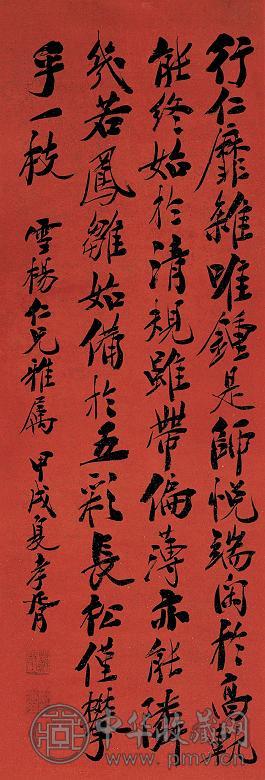 行仁靡雜唯鍾是師悅端閑於高觀
能終始於清規雖帶偏薄亦能隣
幾若鳳雛始備於五彩長松僅攀
乎一枝
雪楊仁兄雅屬 甲戌夏孝胥
中华收藏网
www.pmvich.com